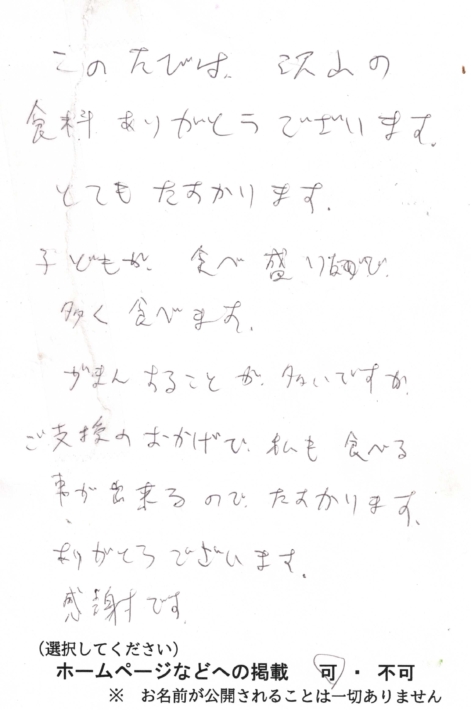 このたびは、沢山の
食料ありがとうございます。
とてもたすかります。
子どもが、食べ盛りので、
多く食べます。
がまんすることが、多いですが、
ご支援のおかげで、私も食べる
事が出来るので、たすかります。
ありがとうございます。
感謝です。
(選択してください)
ホームページなどへの掲載 可 ・ 不可
※ お名前が公開されることは一切ありません